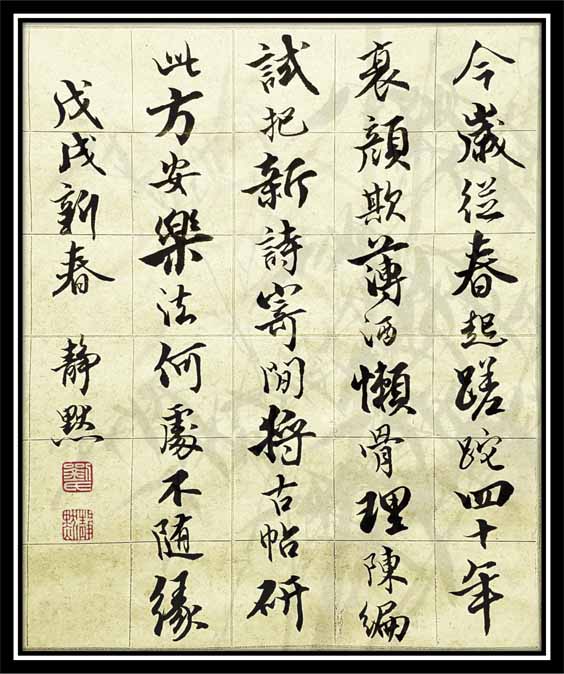 今歲從春起蹉跎四十年
衰顏欺薄酒懶骨理陳編
試把新詩寄閒將古帖研
此方安樂法何處不随緣
戊戌新春 静默